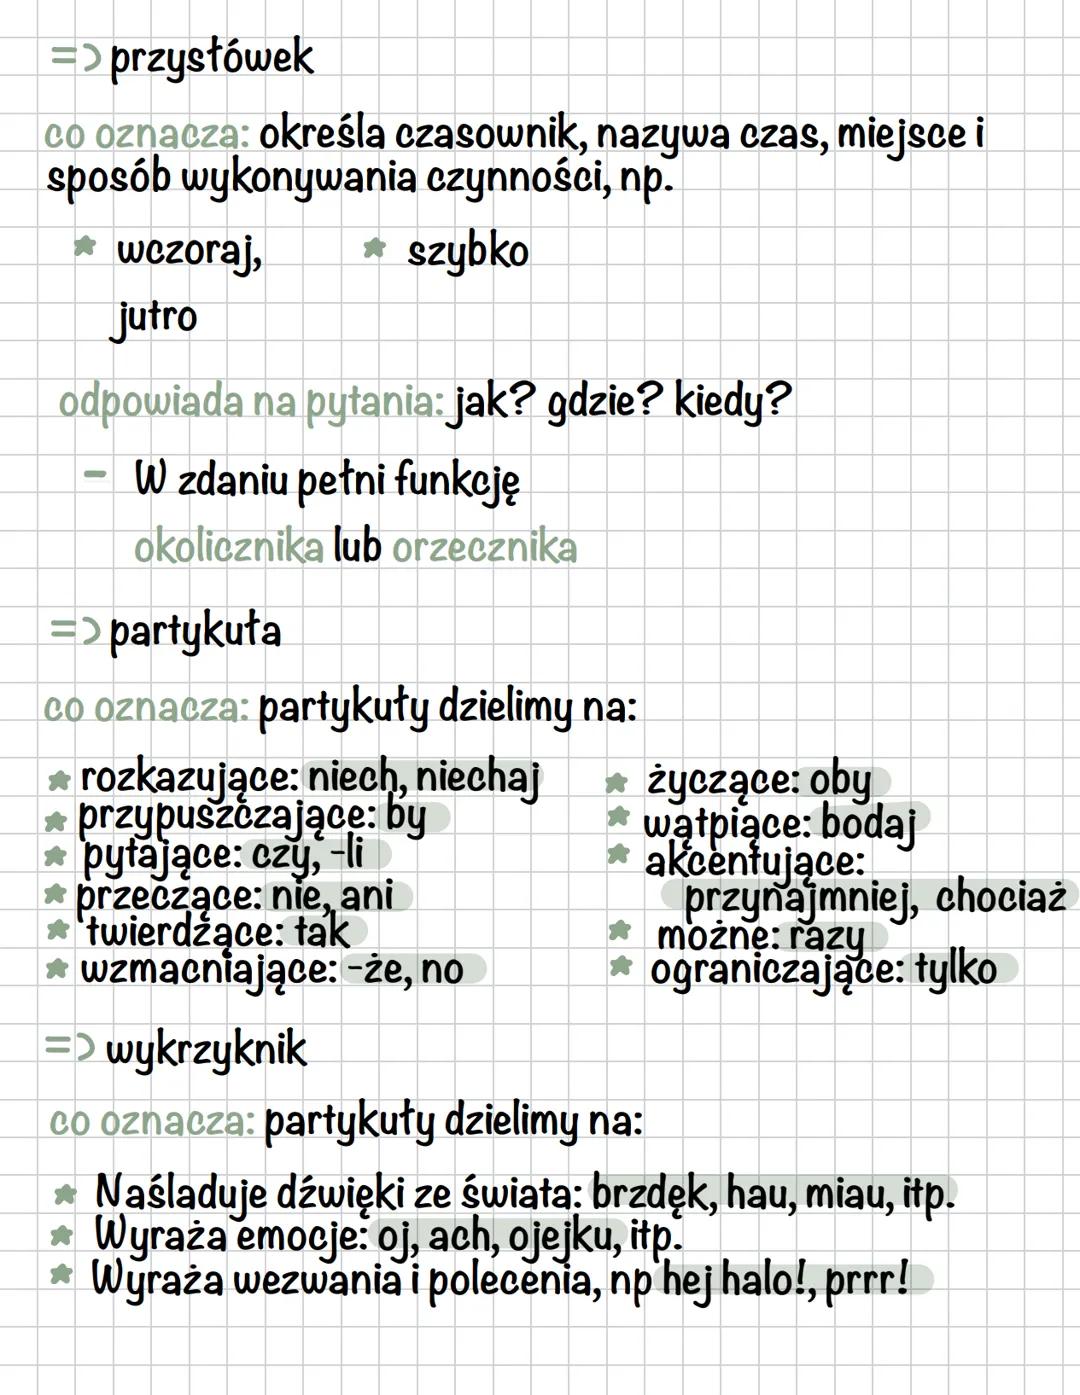 => przysłówek
co oznacza: określa czasownik, nazywa czas, miejsce i
sposób wykonywania czynności, np.
wczoraj,
jutro
szybko
odpowiada na pytania: jak? gdzie? kiedy?
- W zdaniu pełni funkcję
okolicznika lub orzecznika
=> partykuła
co oznacza: partykuły dzielimy na:
rozkazujące: niech, niechaj
przypuszczające: by
pytające: czy, -li
przeczące: nie, ani
twierdzące: tak
wzmacniające: -że, no
życzące: oby
wątpiące: bodaj
akcentujące:
przynajmniej, chociaż
możne: razy
ograniczające: tylko
=> wykrzyknik
co oznacza: partykuły dzielimy na:
Naśladuje dźwięki ze świata: brzdęk, hau, miau, itp.
Wyraża emocje: oj, ach, ojejku, itp.
Wyraża wezwania i polecenia, np hej halo!, prrr!